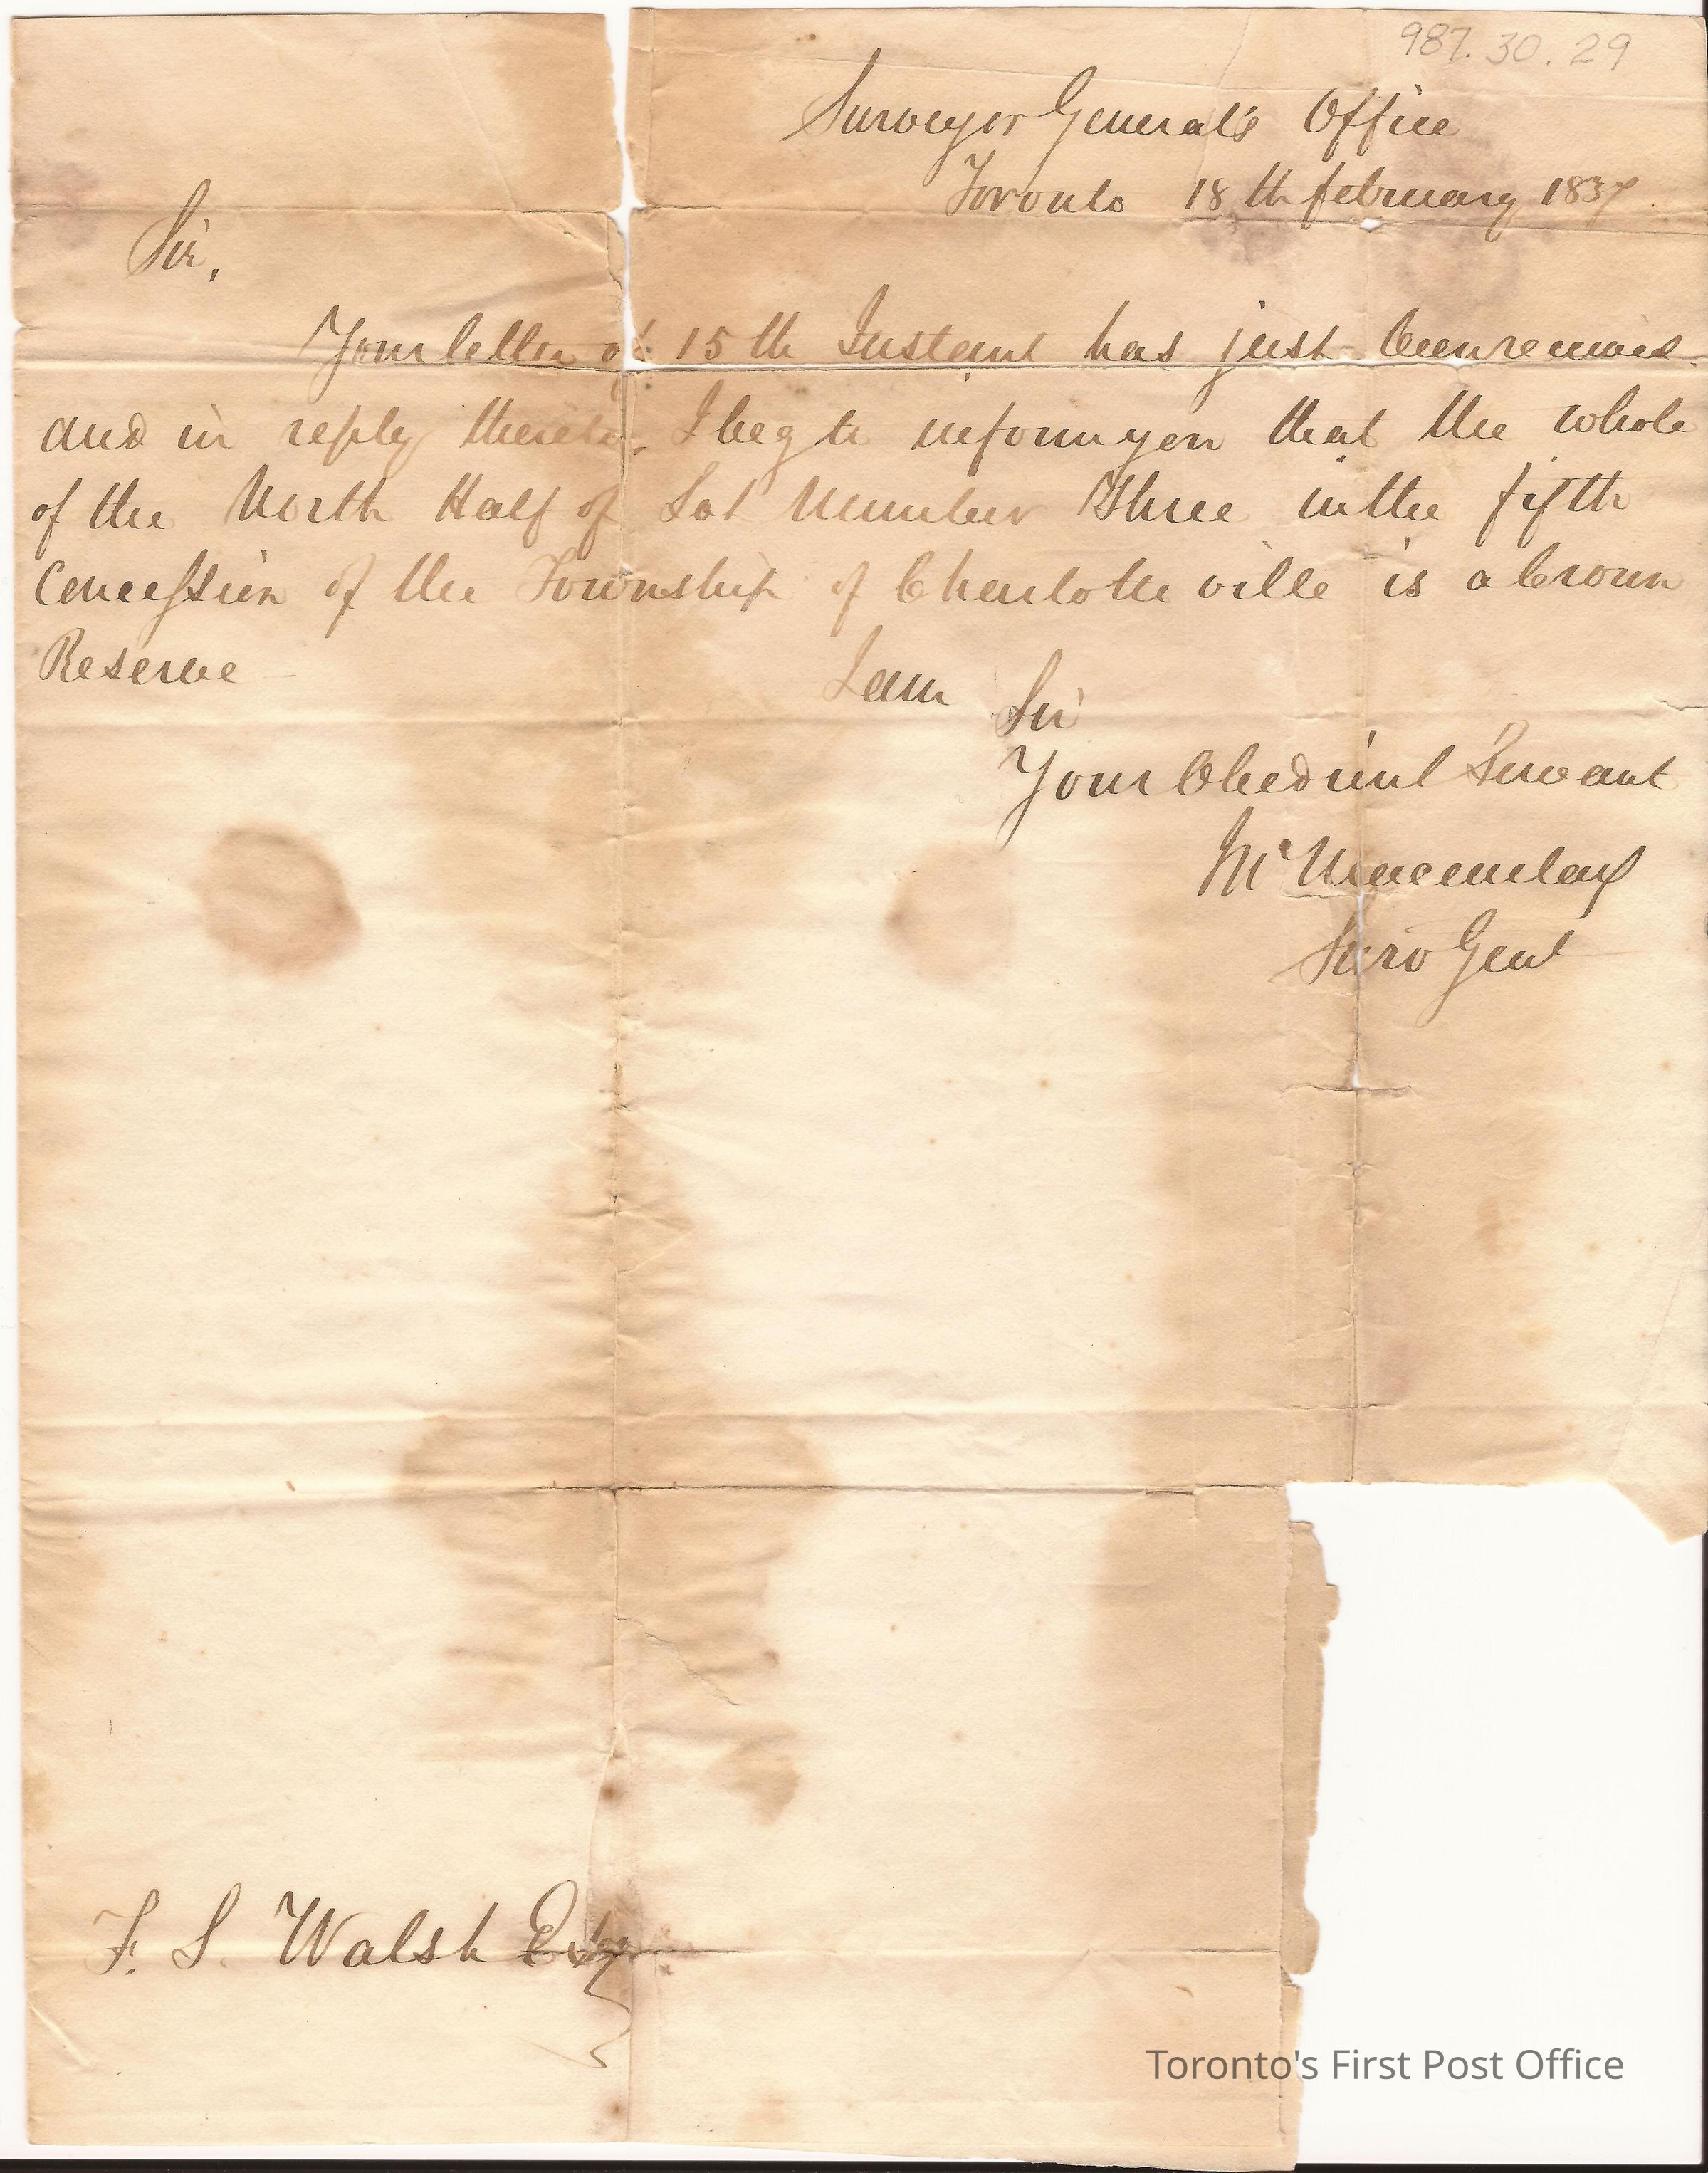 987.30.29
Surveyor General's Office
Toronto 18th february 1837
Sir,
Your letter of 15th Instant has just been received
and in reply thereto, I beg to inform you that the whole
of the North Half of Lot Number Three in the fifth
Concession of the Township of Charlotteville is a Crown
Reserve
I am
Sir
Your Obedient Servant
Macaulay
Surv Genl
F. L. Walsh Esq
Toronto's First Post Office